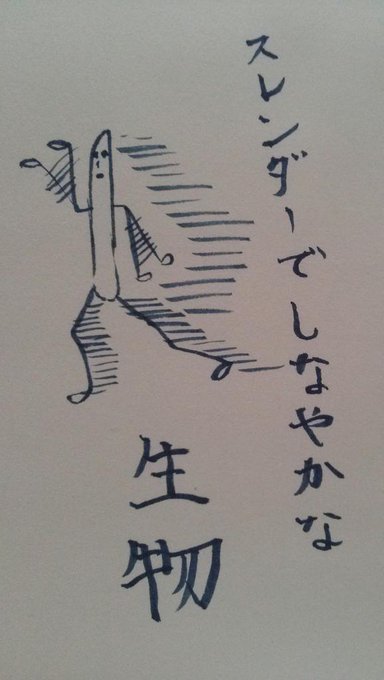 スレンダーでしなやかな
生物